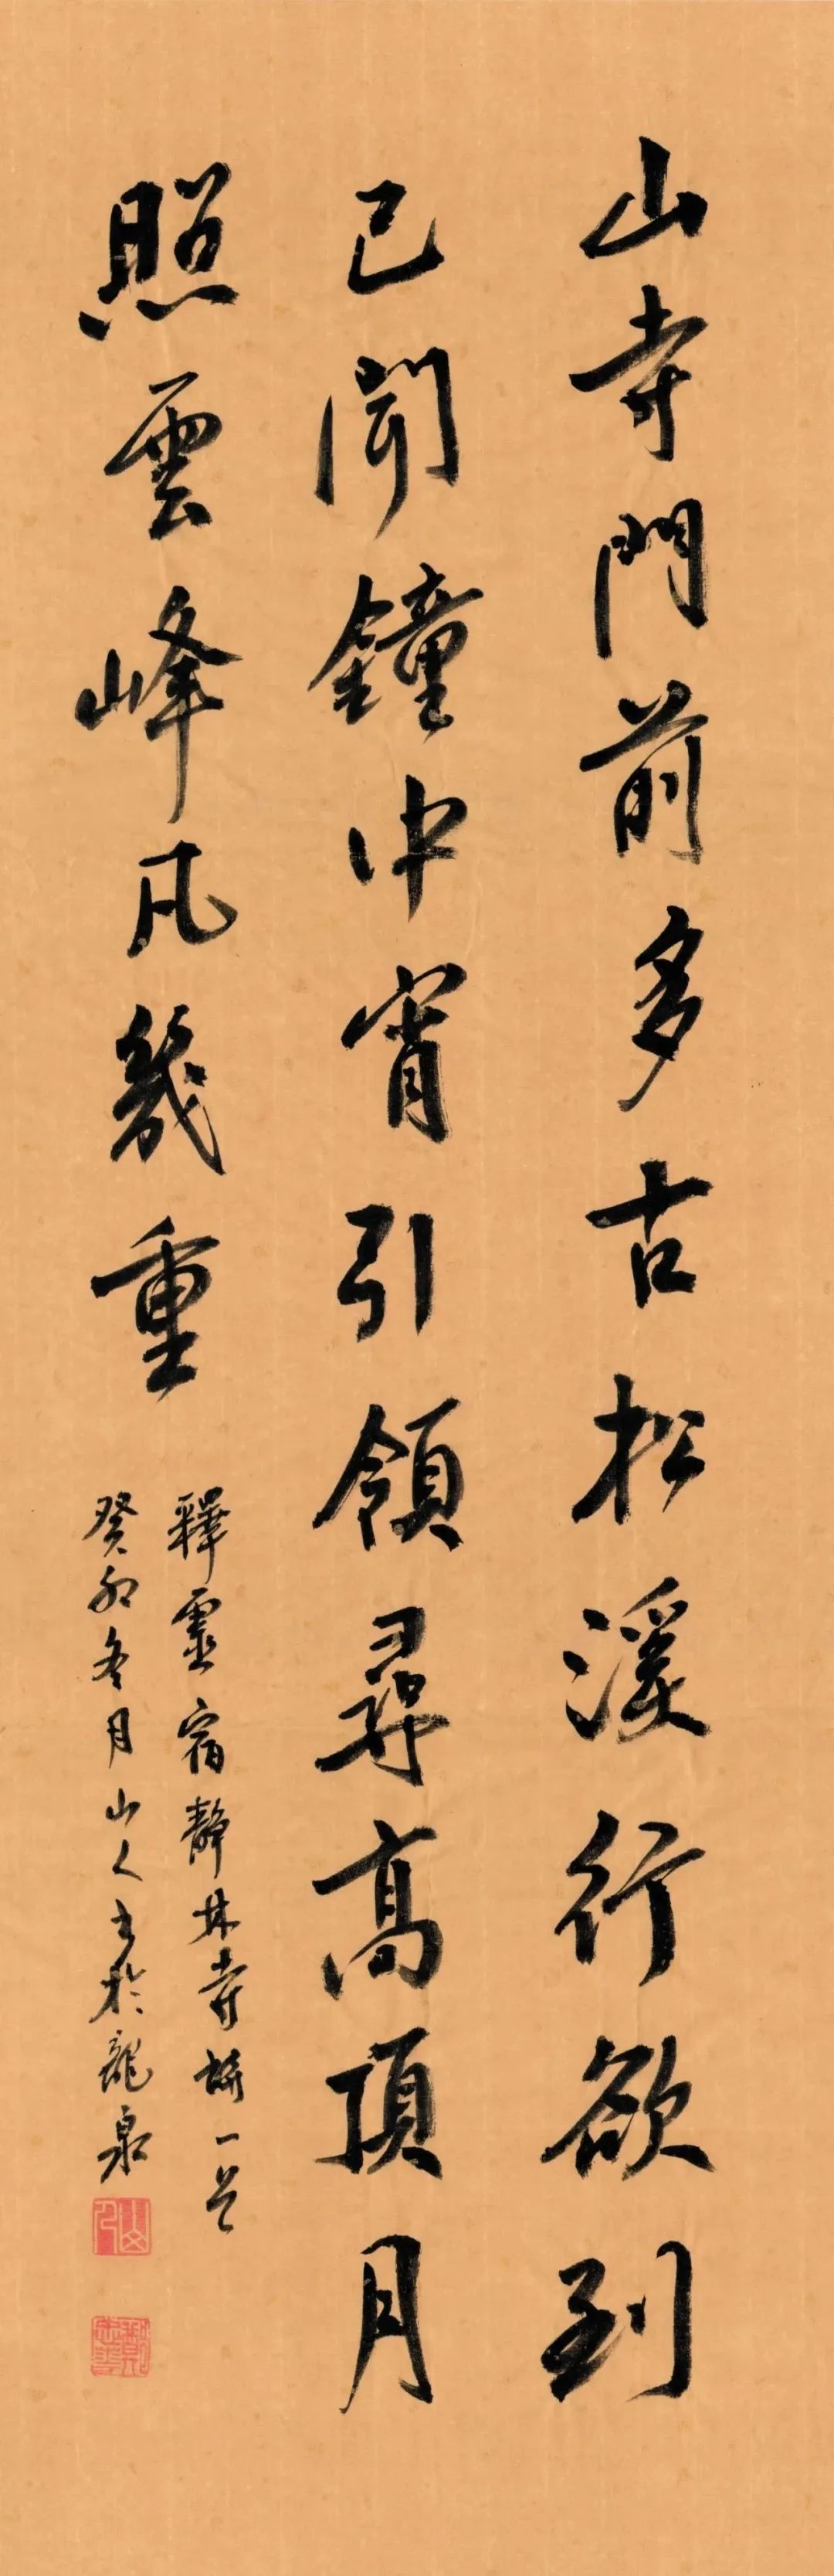 山寺門前多古松溪行欲到
已聞鐘中宵引領尋高頂月
照雲峰凡幾重
釋靈宿靜林寺詩一首
癸卯冬月山人書於龍泉